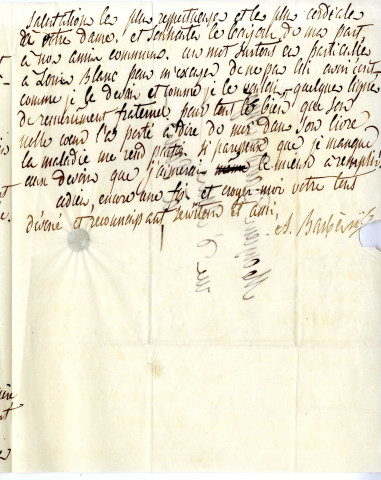 salutation la plus respectueuse et la plus cordiale
de votre dame, et souhaiter le bonjour de ma part
à nos amis communs. un mot surtout en particulier
à Louis Blanc pour m'excuser de ne pas lui avoir écrit
comme je le devais et comme je le voulais quelques lignes
de remerciment fraternel pour tout le bien que son
noble cœur l'a porté à dire de moi dans son livre
la maladie me rend parfois si paresseux que je manque
aux devoirs que j'aimerais le mieux à remplir.
adieu, encore une fois et croyez-moi votre tout
dévoué et reconnaissant serviteur et ami,
A. Barbès